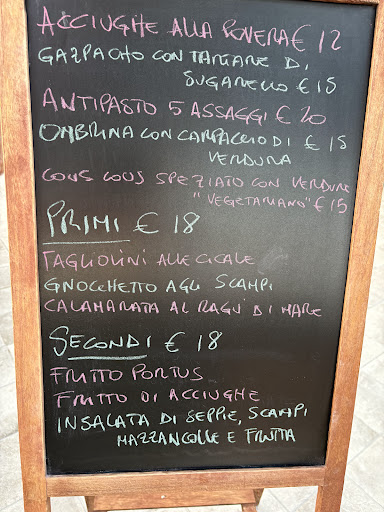 ACCIUGHE ALLA POVERA € 12
GAZPACHO CON TARTARE DI
SUGARELLO € 15
ANTIPASTO 5 ASSAGGI € 20
OMBRINA CON CARPACCIO DI € 15
VERDURA
COUS COUS SPEZIATO CON VERDURE
"VEGETARIANO" € 15
PRIMI € 18
TAGLIOLINI ALLE CICALE
GNOCCHETTO AGLI SCAMPI
CALAMARATA AL RAGU' DI MARE
SECONDI € 18
FRITTO PORTUS
FRITTO DI ACCIUGHE
INSALATA DI SEPPIE, SCAMPI
MAZZANCOLLE E FRUTTA